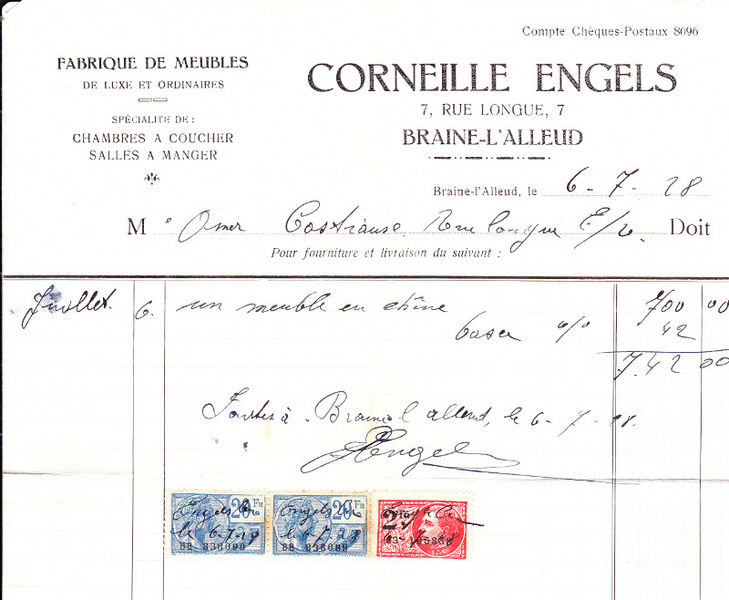 Compte Chèques-Postaux 8696
FABRIQUE DE MEUBLES
DE LUXE ET ORDINAIRES
SPÉCIALITÉ DE :
CHAMBRES A COUCHER
SALLES A MANGER
CORNEILLE ENGELS
7, RUE LONGUE, 7
BRAINE-L'ALLEUD
Braine-l'Alleud, le 6-7-28
M Omer rue longue E/v. Doit
Pour fourniture et livraison du suivant :
Juillet 6. un meuble en chêne 700 00
taxe 6 % 42
742 00
Braine l'alleud, le 6-7-28.
Engels
20 FR Engels le 6-7-28
20 FR Engels le 6-7-28
2